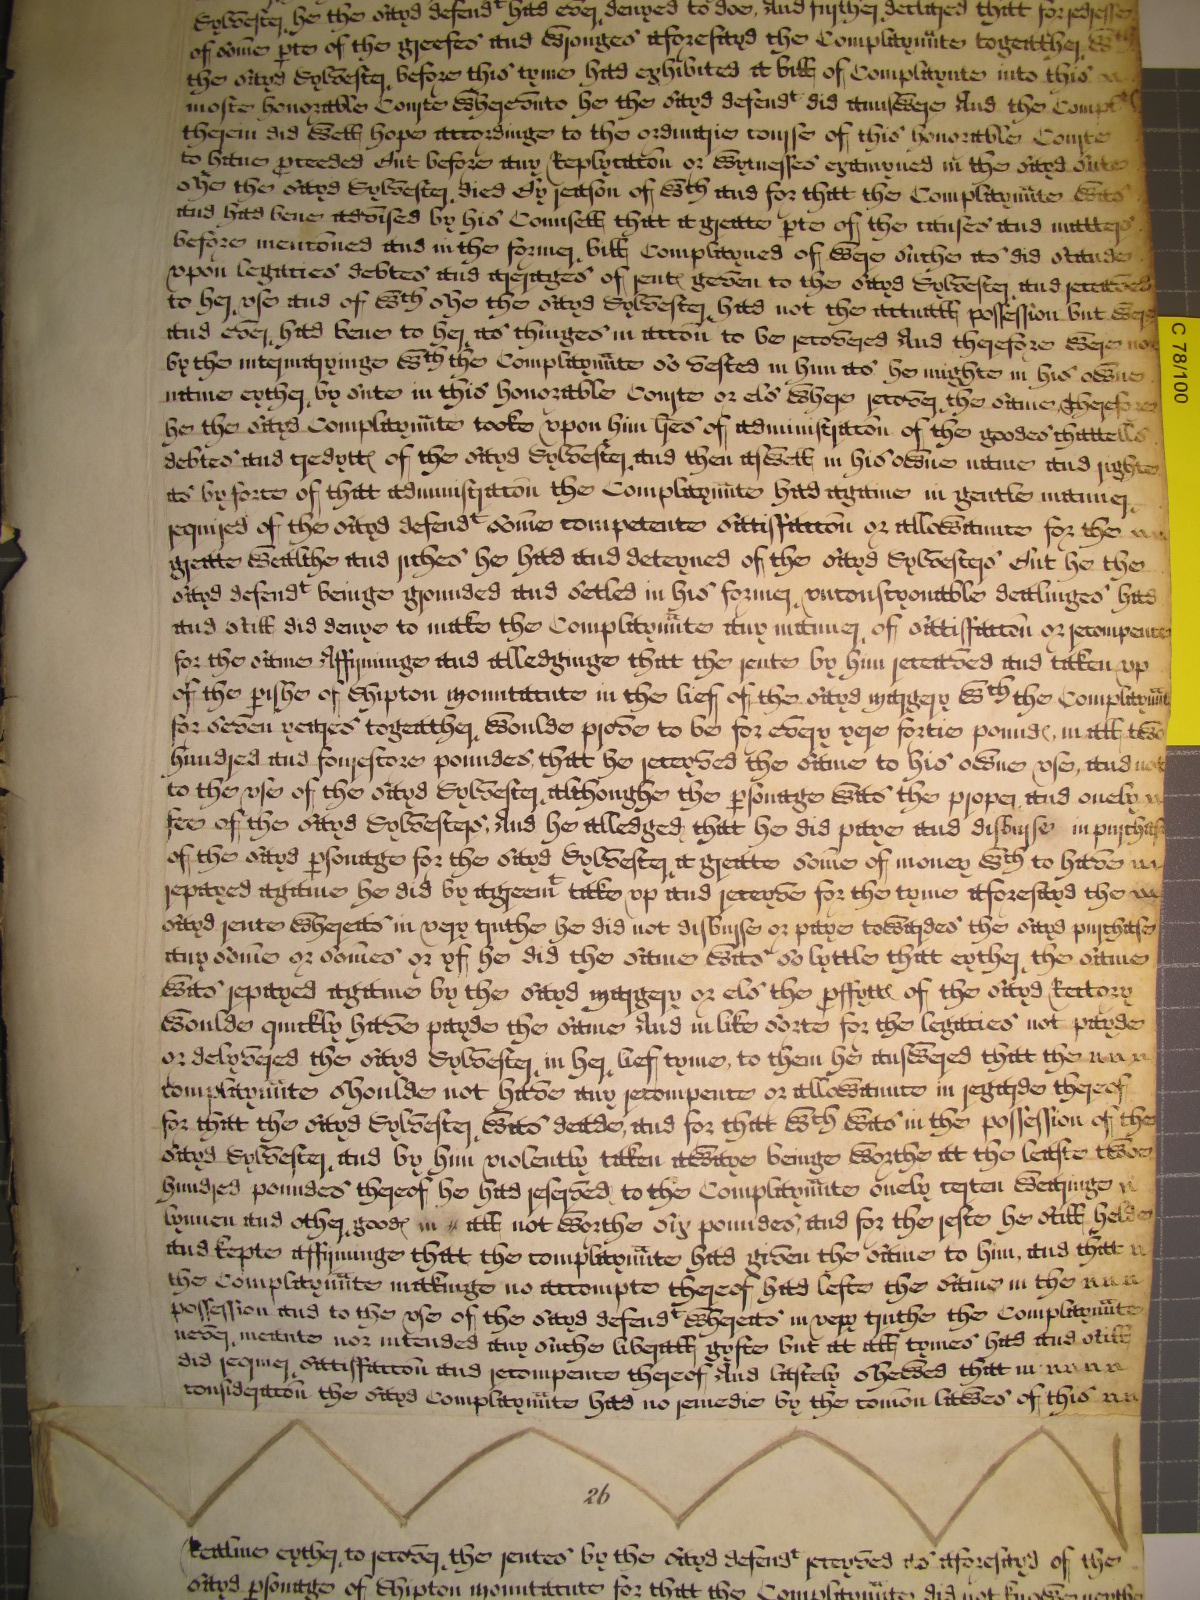 Sylvester, he the sayd defend^t had ever denyed to doe, And further declared that for redresse
of some p'te of the greefes and wronges aforesayd the Complaynante togeather w^th
the sayd Sylvester before this tyme had exhibited a bill of Complaynte into this
moste honorable Courte Wherevnto he the sayd defend^t did aunswere And the Compl^t
therein did well hope accordinge to the ordinarie course of this honorable Courte
to haue p'ceeded But before any Replycacōn or wytnesses examyned in the sayd sute
she the sayd Sylvester died By reason of w^ch and for that the Complaynaūte was
and had bene advised by his Counsell that a greate p'te of the causes and matters
before mencōned and in the former bill Complayned of were suche as did stande
vpon legacies debtes and arerages of rente geven to the sayd Sylvester and receaved
to her vse and of w^ch she the sayd Sylvester had not the actuall possession but were
and ever had bene to her as thinges in accōn to be recovered And therefore were not
by the intermaryinge w^th the Complaynaūte so vested in him as he mighte in his owne
name eyther by sute in this honorable Courte or els where recover the same Therefore
he the sayd Complaynaūte tooke vpon him l'res of administracōn of the goodes chattells
debtes and credytt of the sayd Sylvester and then aswell in his owne name and righte
as by force of that administracōn the Complaynaūte had againe in gentle manner
required of the sayd defend^t some competente satisfaccōn or allowaunce for the
greate wealthe and riches he had and deteyned of the sayd Sylvesters But he the
sayd defend^t beinge grounded and setled in his former vnconscyonable dealinges had
and still did denye to make the Complaynaūte any manner of sattisfaccōn or recompence
for the same Affirminge and alledginge that the rente by him receaved and taken vp
of the p'ishe of Shipton mountacute in the lief of the sayd margery w^th the Complaynaūt
for seven yeares togeather woulde prove to be for every yere fortie pound, in all two
hundred and fourescore poundes, that he receyved the same to his owne vse, and not
to the vse of the sayd Sylvester althoughe the p'sonage was the proper and onely
fee of the sayd Sylvesters, And he alledged that he did paye and disburse in purchase
of the sayd p'sonage for the sayd Sylvester a greate some of money w^ch to have
repayed againe he did by agreem^t take vp and receyve for the tyme aforesayd the
sayd rente whereas in very truthe he did not disburse or paye towardes the sayd purchase
any some or somes or yf he did the same was so lyttle that eyther the same
was repayed againe by the sayd margery or els the p'ffytt of the sayd Rectory
woulde quickly have payde the same And in like sorte for the legacies not payde
or delyvered the sayd Sylvester in her lief tyme, to them he answered that the
complaynaūte shoulde not have any recompence or allowaunce in regarde thereof
for that the sayd Sylvester was deade, and for that w^ch was in the possession of the
sayd Sylvester and by him violently taken awaye beinge worthe at the leaste twoe
hundred poundes thereof he had reserved to the Complaynaūte onely certen wearinge
lynnen and other good in all not worthe six poundes, and for the reste he still helde
and kepte affirminge that the complaynaūte had given the same to him, and that
the Complaynaūte makinge no accompte thereof had lefte the same in the
possession and to the vse of the sayd defend^t Whereas in very truthe the Complaynaūte
never meante nor intended any suche liberall gyfte but at all tymes had and still
did require sattisfaccōn and recompence thereof And lastely shewed that in
consideracōn the sayd Complaynaūte had no remedie by the comōn lawes of this
26
Realme eyther to recover the rentes by the sayd defend^t receyved as aforesayd of the
sayd p'sonage of Shipton mountacute for that the Complaynaūte did not knowe
C 78/100